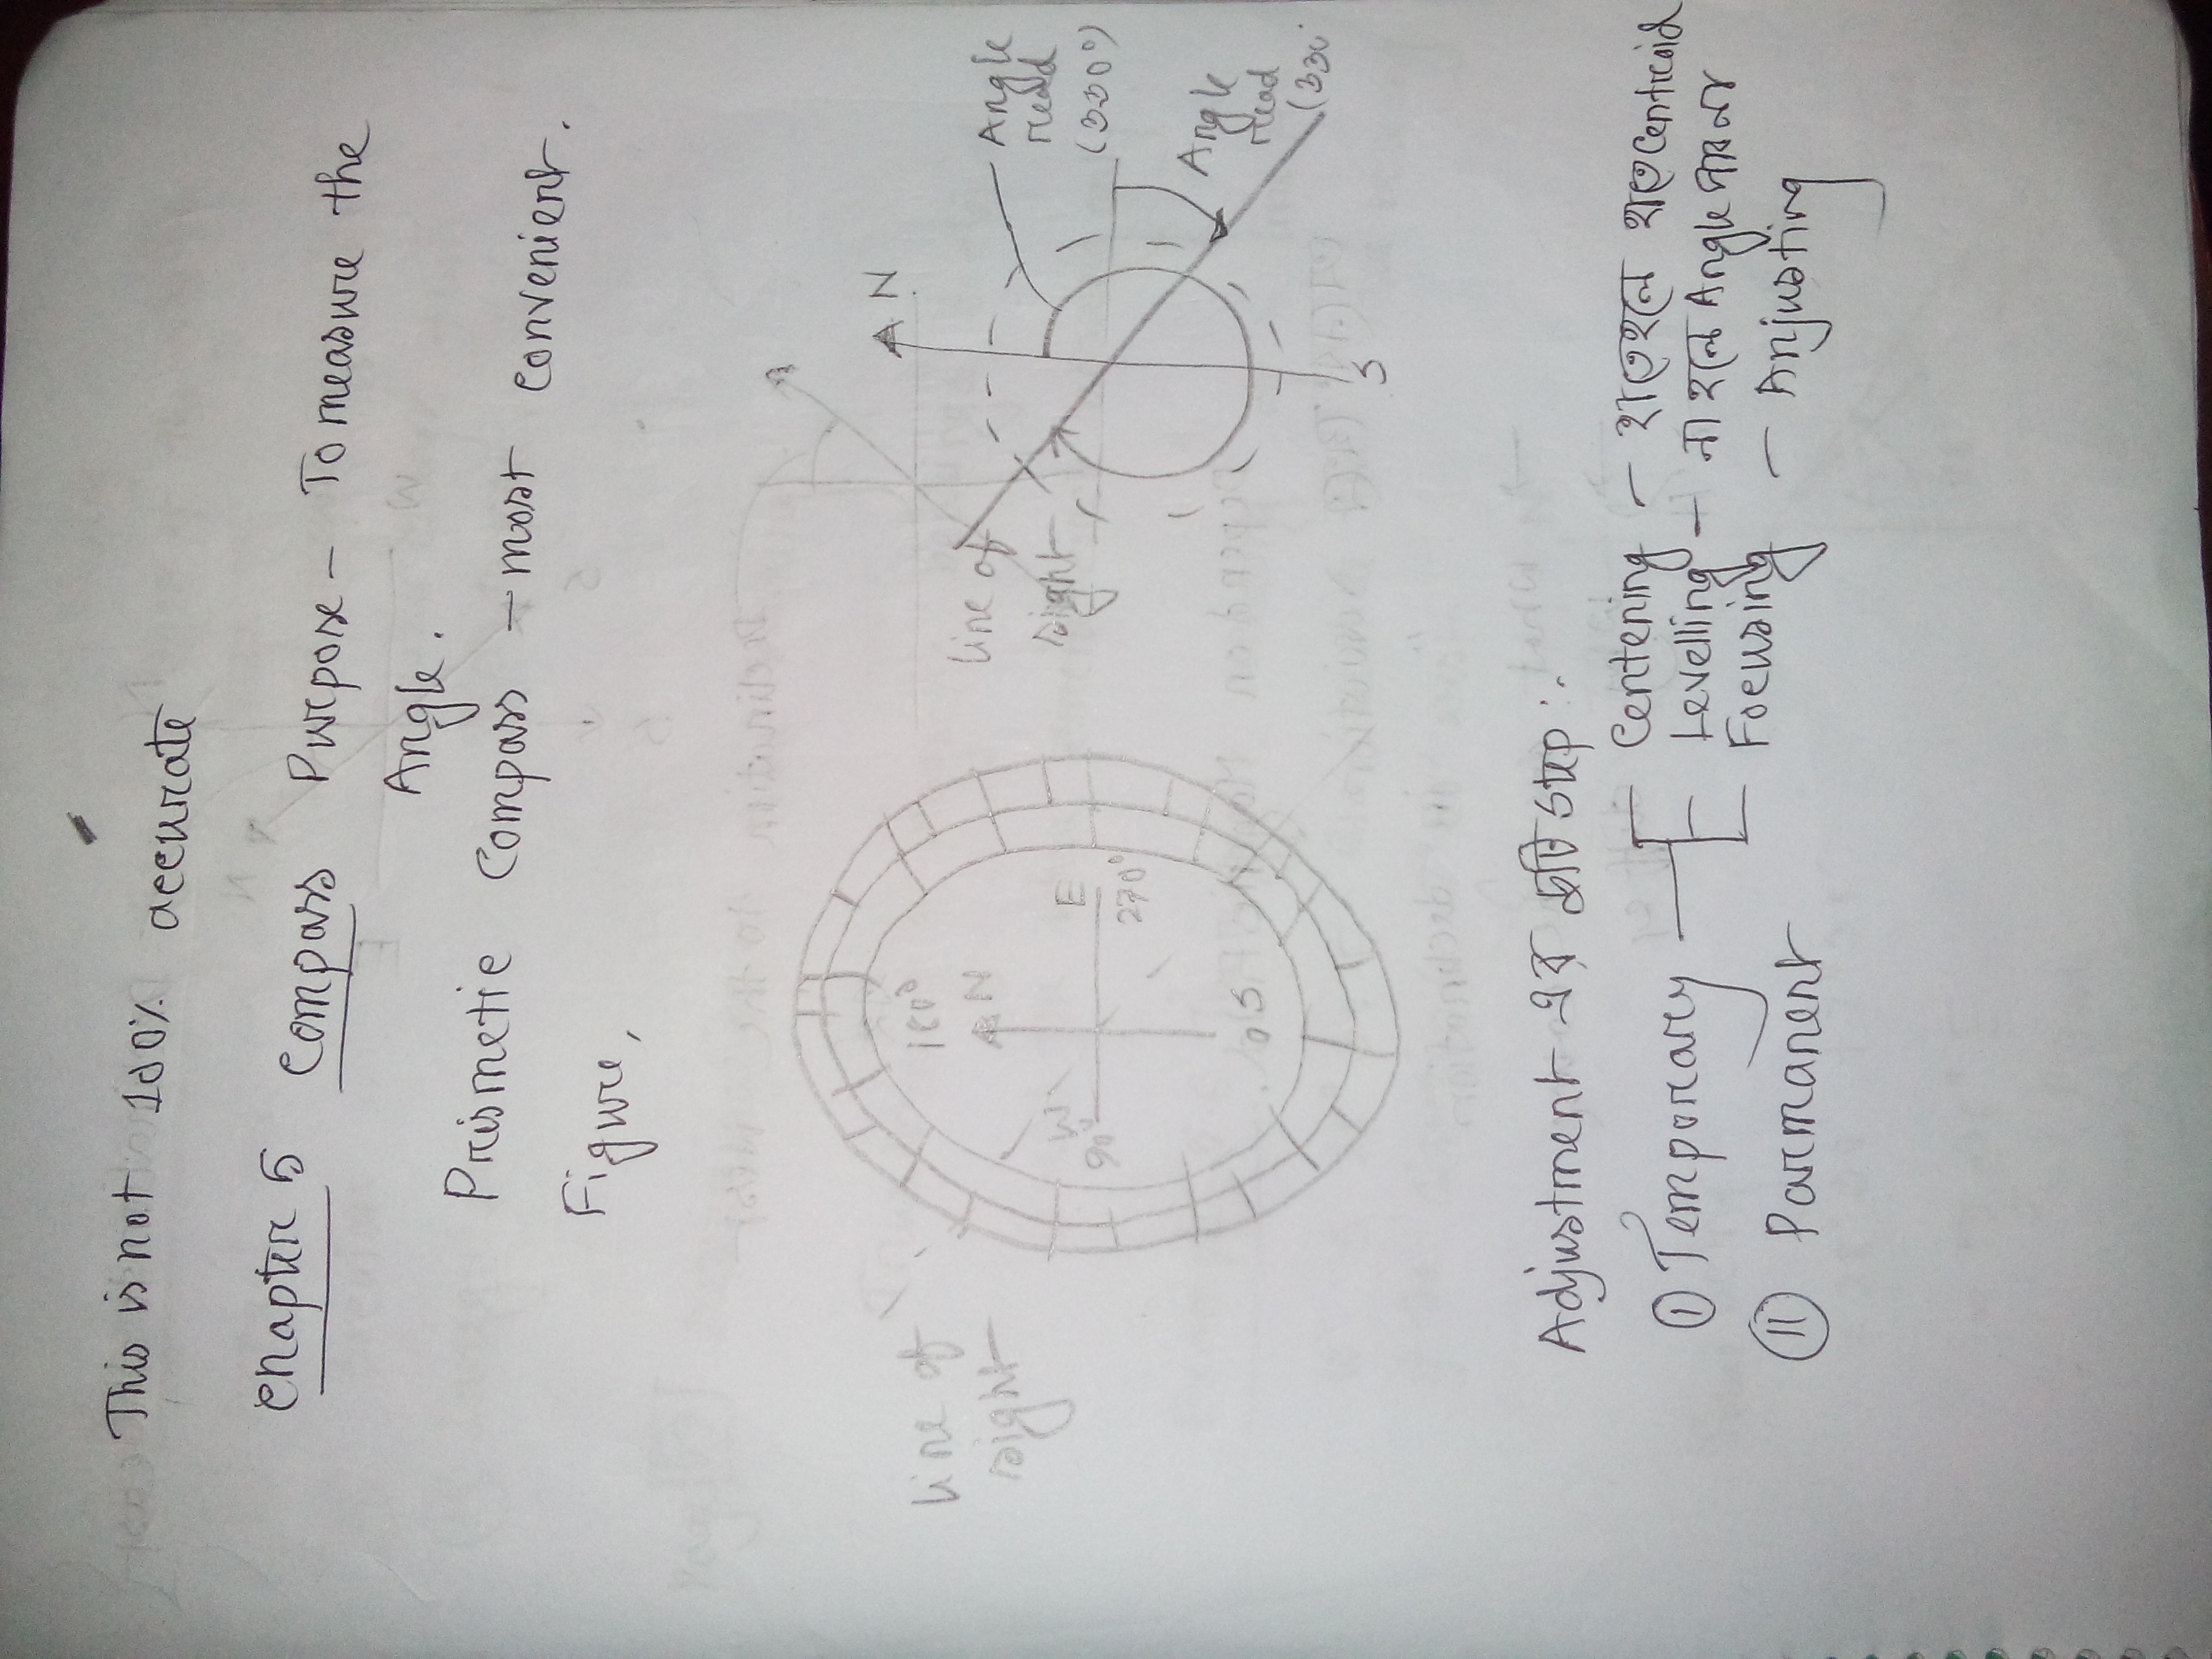 This is not 100% accurate
Chapter 5 Compass Purpose - To measure the
Angle.
Prismetic Compass - most convenient.
Figure,
Line of
sight
180°
N
W
90°
E
270°
0 S
Line of
sight
N
S
Angle
read
Angle
read
Adjustment এর দুটি step:.
(i) Temporary
Centering - হাতেহলে হাতে Centroid
Levelling - না হলে Angle
Focusing - Anjusting
(ii) Parmanent